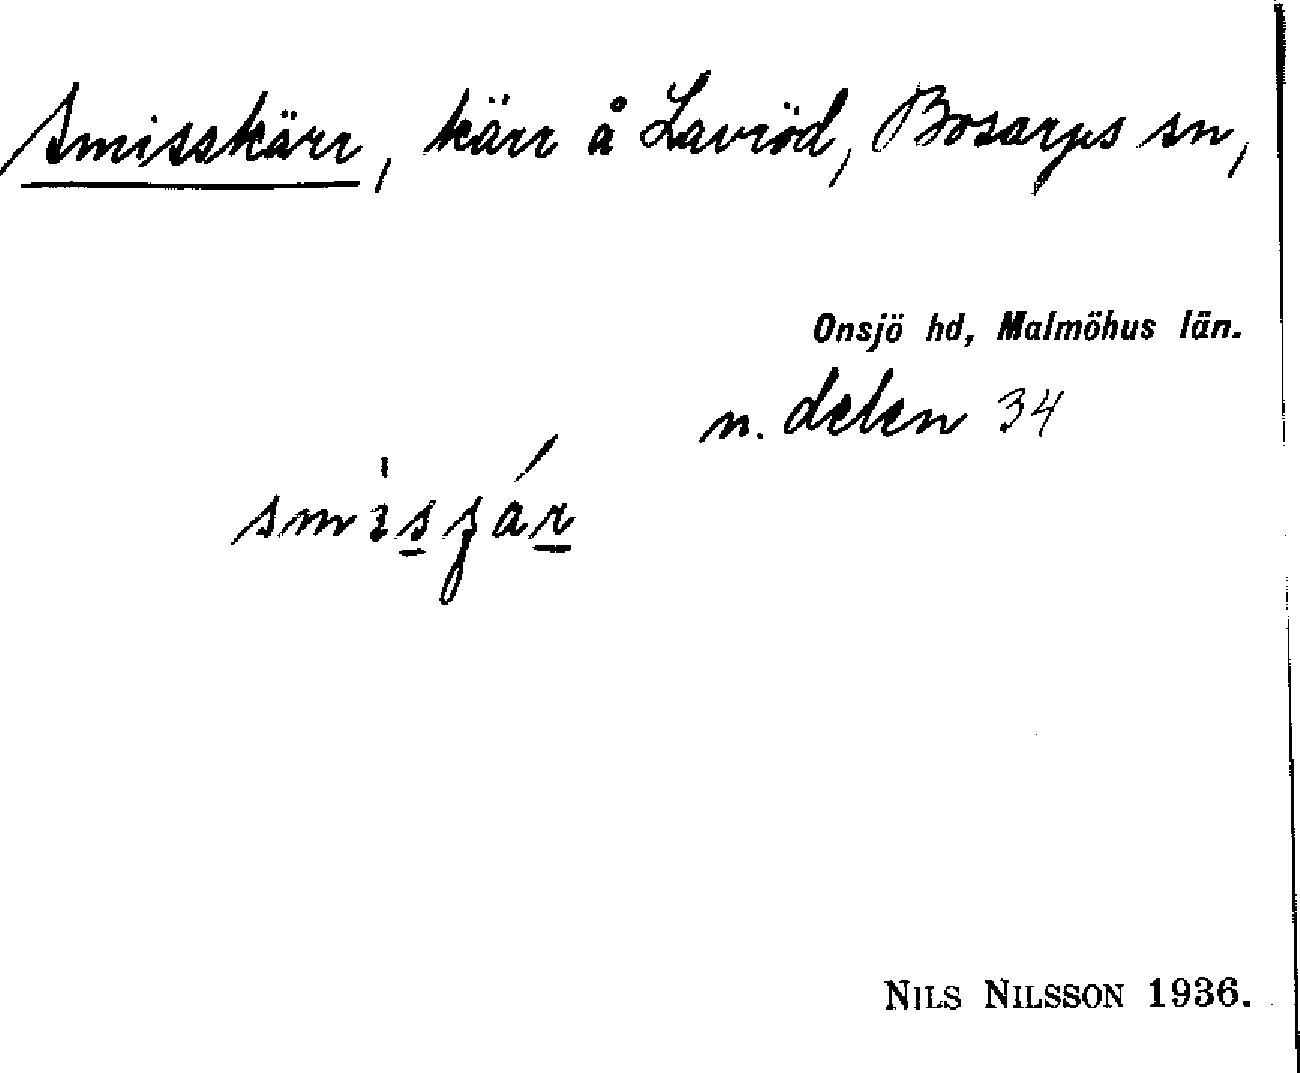 Smisskärr, kärr å Lavröd, Bosarps sn,
Onsjö hd, Malmöhus län.
n. delen 34
NILS NILSSON 1936.